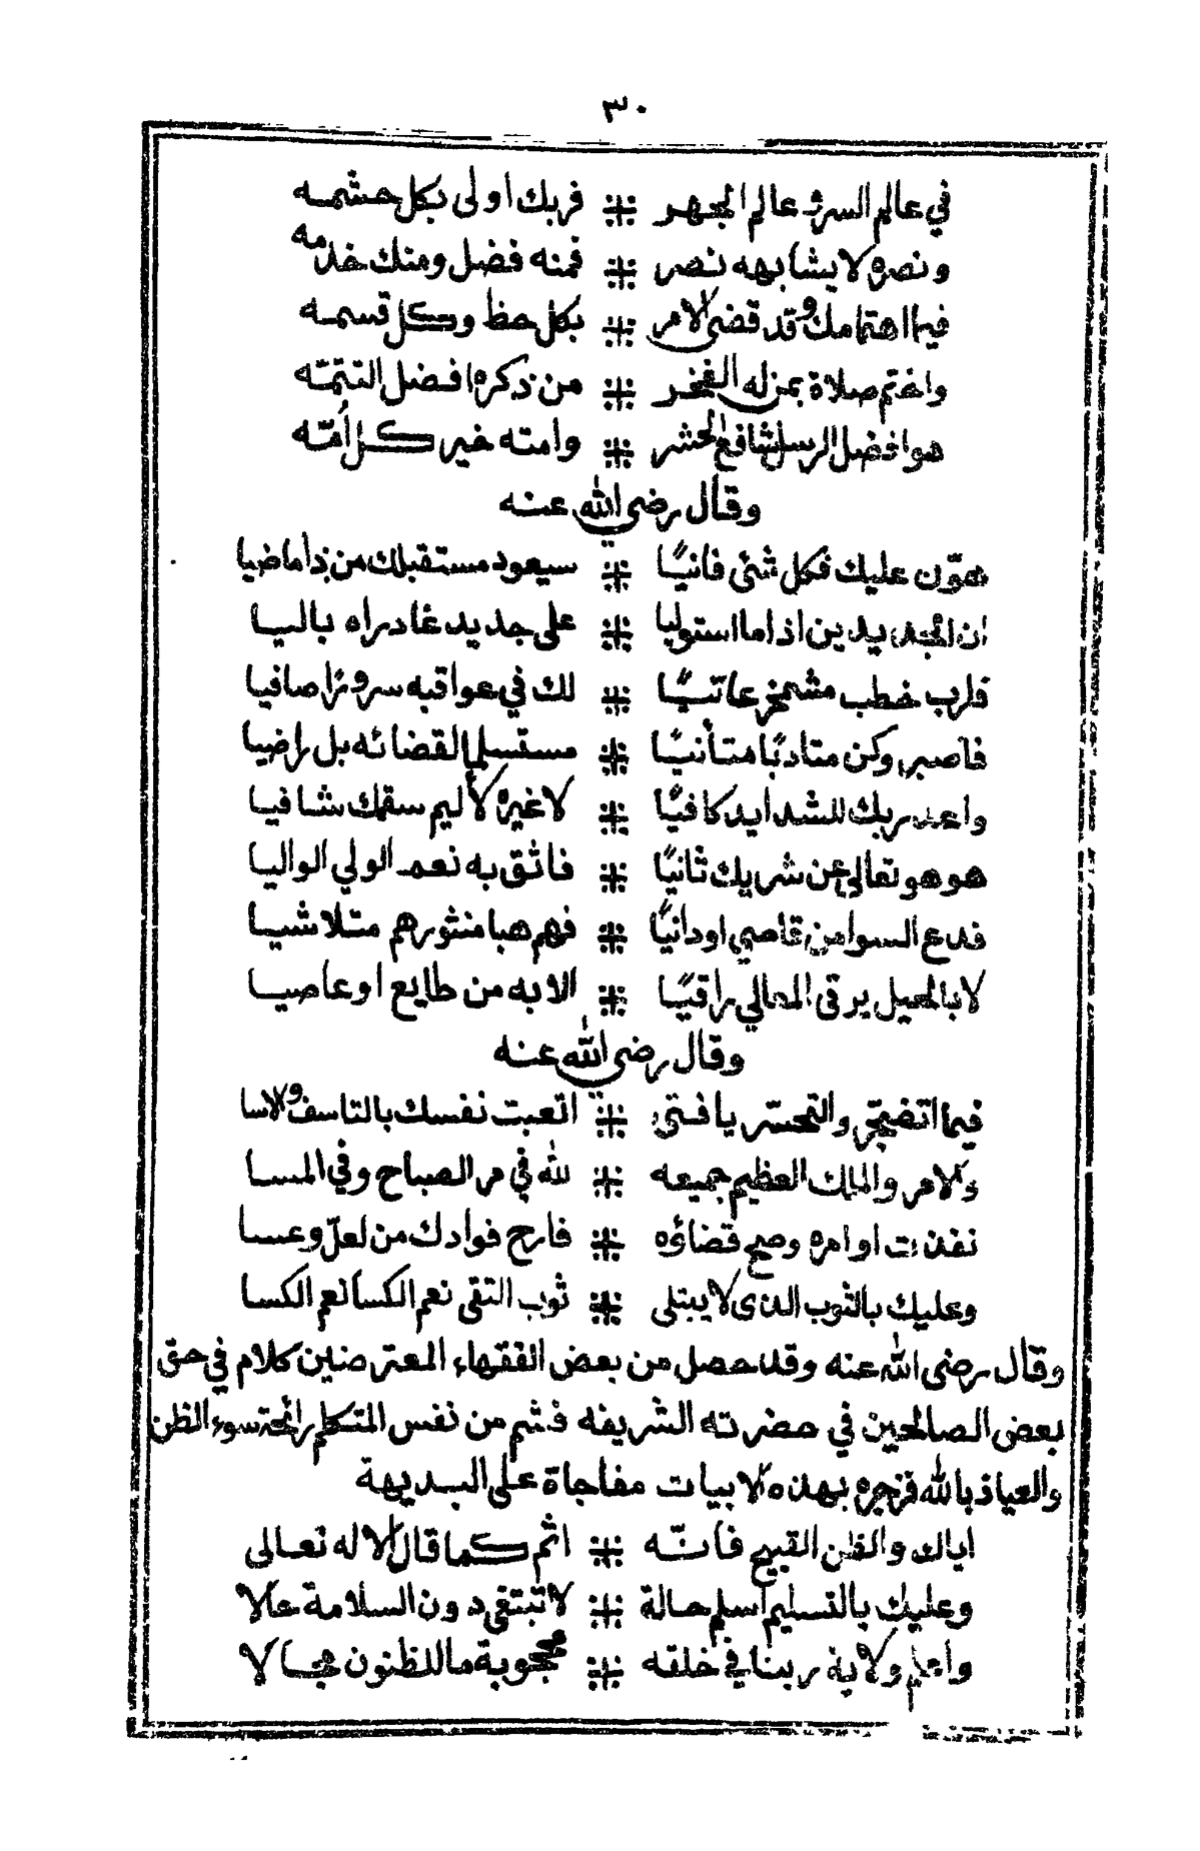 ٣٠
في عالم السر ثم عالم الجهر ⁜ فربك اولى بكل حشمـه
ونصره لا يشابهه نصر ⁜ فمنه فضل ومنك خدمه
فيما اهتمامك وقد قضى الامر ⁜ بكل حظ وكل قسمـه
واختم صلاة بمن له الفخر ⁜ من ذكره افضل التتمّه
هو افضل الرسل شافع الحشر ⁜ وامته خير كل أمّه
وقال رضي الله عنه
هوّن عليك فكل شئ فانيًا ⁜ سيعود مستقبلك من ذا ماضيا
ان الجديدين اذا ما استوليا ⁜ على جديد غادراه باليا
فلرب خطب مشمخر عاتيًا ⁜ لك في عواقبه سرورًا صافيا
فاصبر وكن متادبًا متأنيًا ⁜ مستسلما لقضائه بل راضيا
واعدد ربك للشدايد كافيًا ⁜ لا غيره لأليم سقمك شافيا
هو هو تعالى عن شريك ثانيًا ⁜ فاثق به نعم الولي الواليا
فدع السوا من قاصي او دانيًا ⁜ فهم هبا منثورهم متلاشيا
لا بالحيل يرقى المعالي راقيًا ⁜ الا به من طايع او عاصيا
وقال رضي الله عنه
فيما اتضجّر والتحسّر يا فتى ⁜ اتعبت نفسك بالتاسف والاسا
والامر والملك العظيم جميعه ⁜ لله في مر الصباح وفي المسا
نفذت اوامره وصح قضاؤه ⁜ فارح فوادك من لعلّ وعسا
وعليك بالثوب الذى لا يبتلى ⁜ ثوب التقى نعم الكسا نعم الكسا
وقال رضى الله عنه وقد حصل من بعض الفقهاء المعترضين كلام في حق
بعض الصالحين في حضرته الشريفه فشم من نفس المتكلم رائحة سوء الظن
والعياذ بالله فزجره بهذه الابيات مفاجاة على البديهة
اياك والظن القبيح فانّه ⁜ اثم كما قال الاله تعالى
وعليك بالتسليم اسلم حالة ⁜ لا تبتغي دون السلامة حالا
واعلم ولاية ربنا في خلقه ⁜ محجوبة ما للظنون مجالا